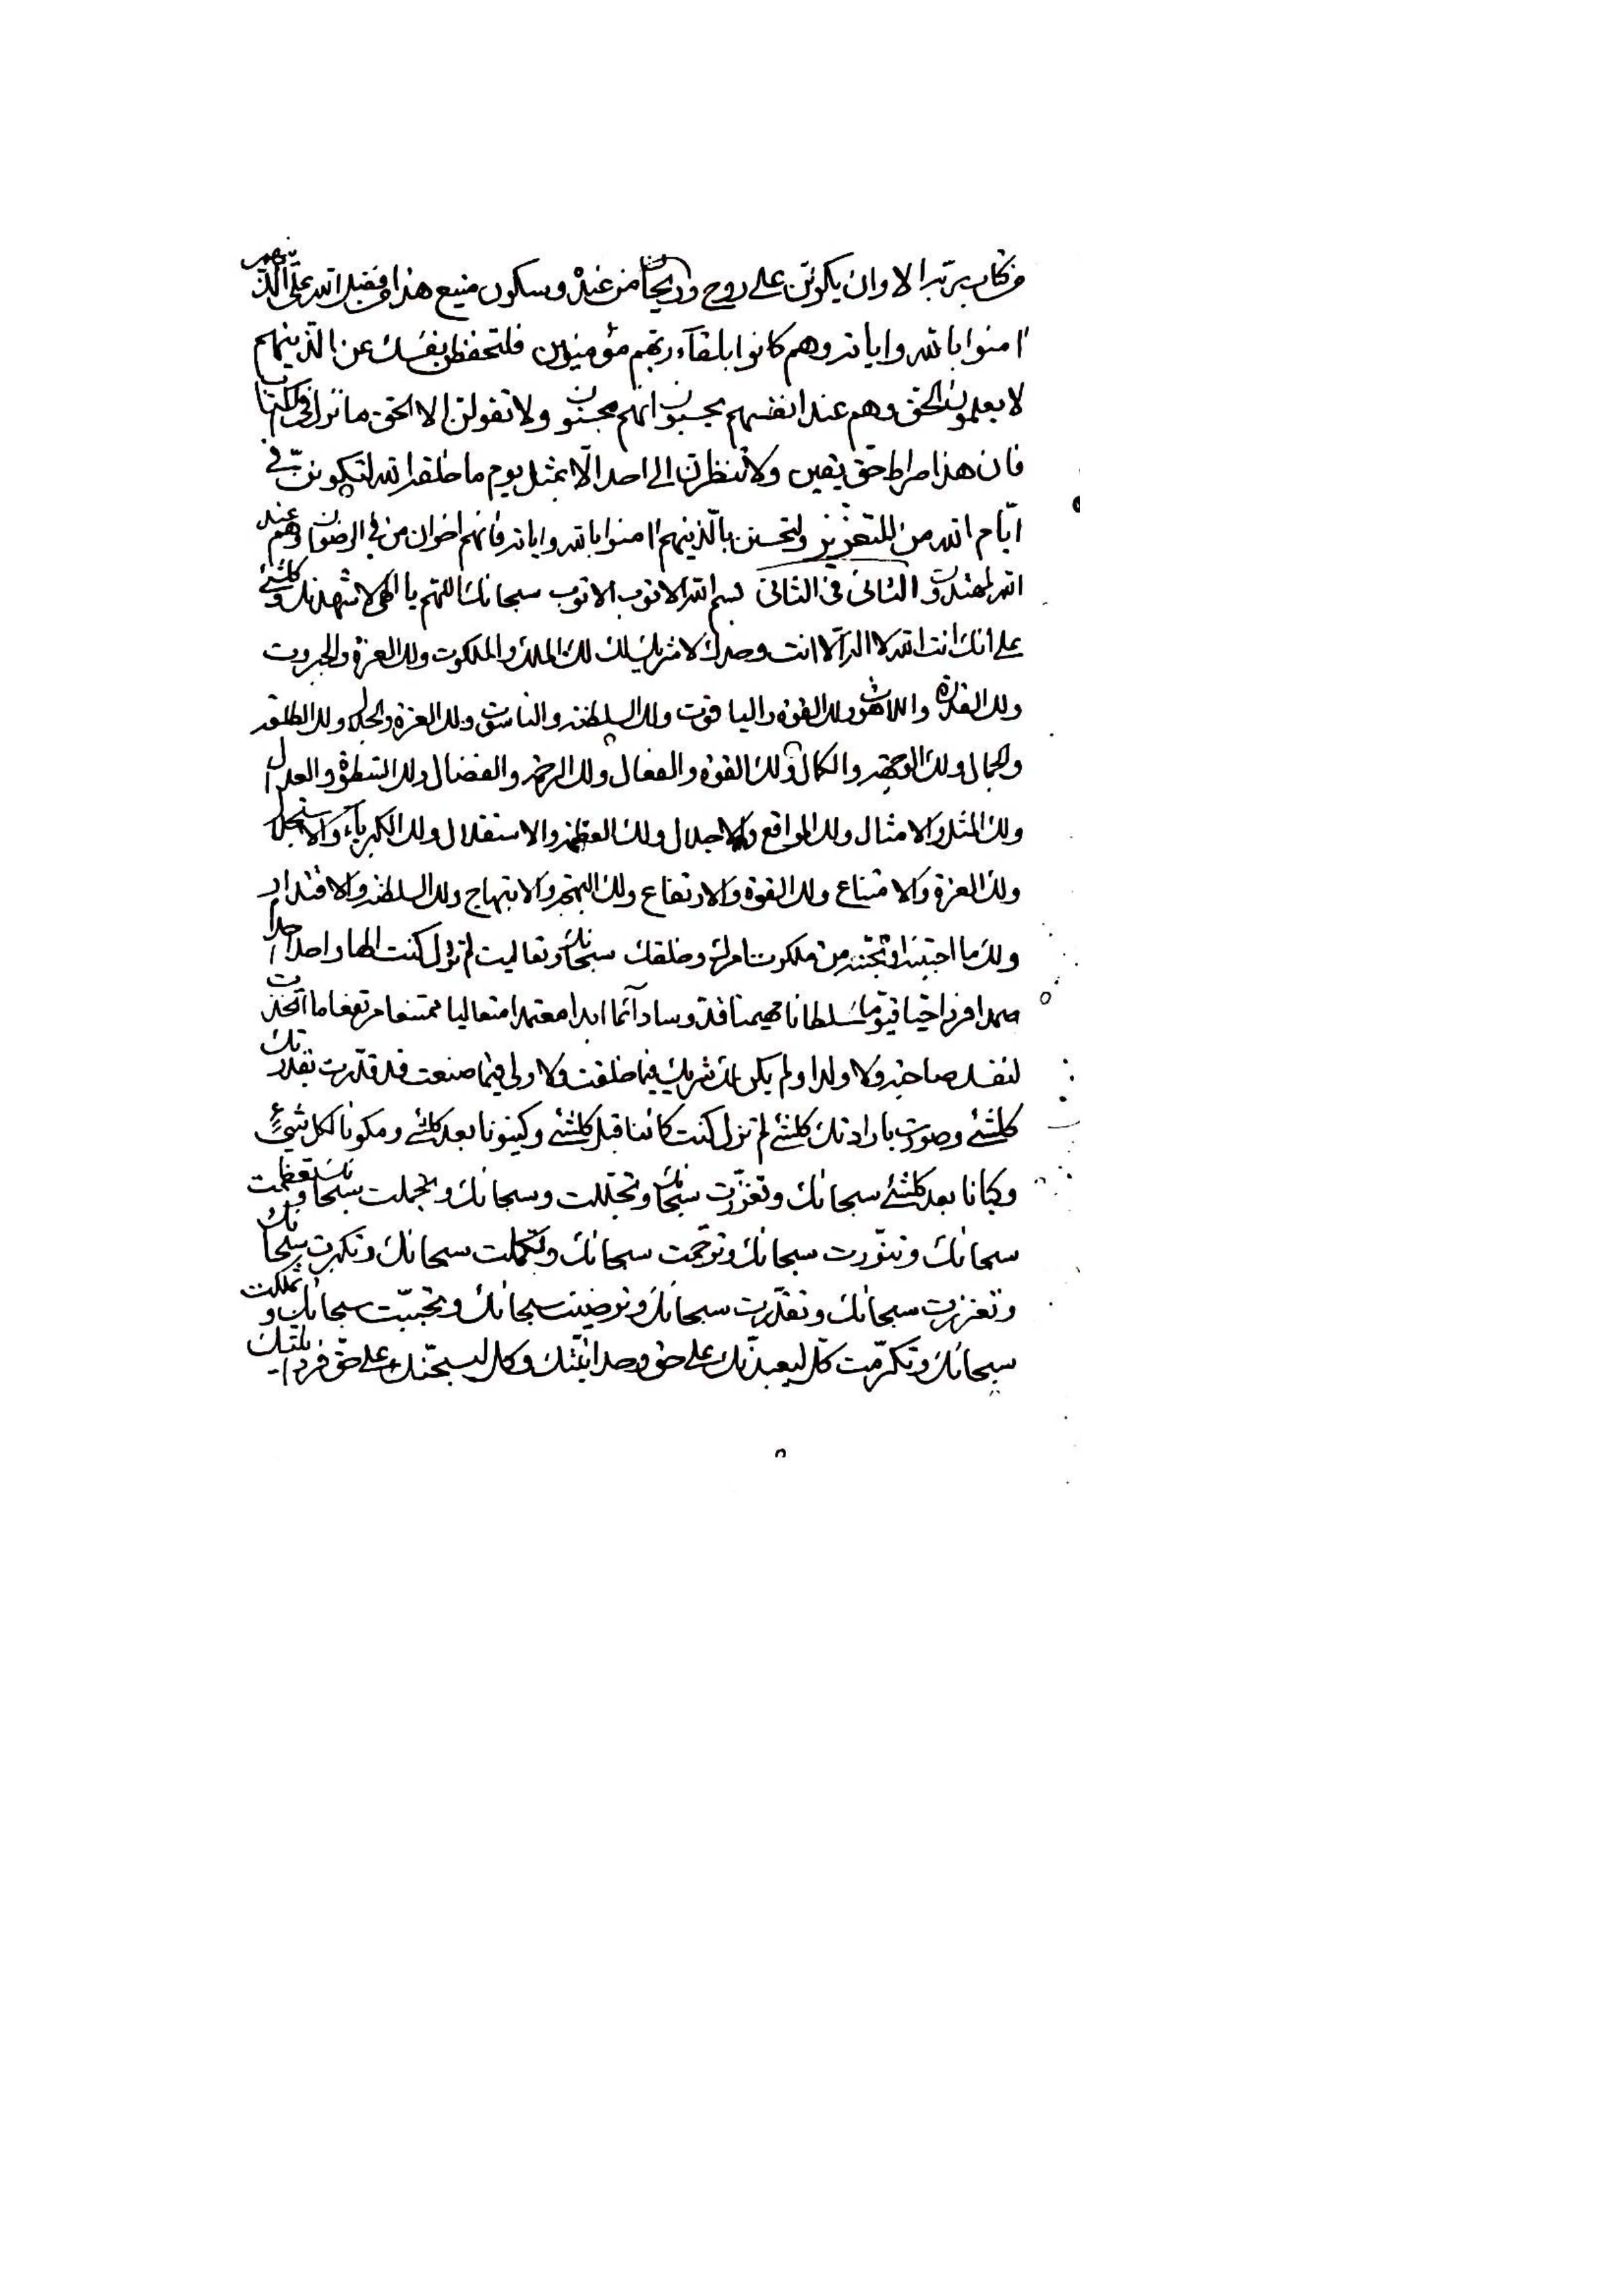 من كتاب ربه الا وان يكونن على روح وريحان من عنده وسكون منيع هذا من فضل الله على الذينهم
امنوا بالله واياته وهم كانوا بلقآء ربهم مؤمنون فلتحفظن نفسك عن الذينهم
لا يعلمون الحق وهم عند انفسهم يحسبون انهم محسنون ولا تقولن الا الحق ما نزل في الكتاب
فان هذا صراط حق يقين ولا تنظرن الى احد الا بمثل يوم ما خلقه الله لتكونن في
ايام الله من المتعززين ولتحسنن بالذينهم امنوا بالله واياته فانهم اخوان من في الرضوان وهم عند
الله لمهتدون الثانى فى الثانى بسم الله الاتوب الاتوب سبحانك اللهم يا الهى لاشهدنك وكلشئ
على انك انت الله لا اله الا انت وحدك لا شريك لك لك الملك والملكوت ولك العزة والجبروت
ولك القدرة واللاهوت ولك القوة والياقوت ولك السلطنة والناسوت ولك العزة والجلال ولك الطلعة
والجمال ولك الوجهة والكمال ولك القوة والفعال ولك الرحمة والفضال ولك السطوة والعدال
ولك المثل والامثال ولك المواقع والاجلال ولك العظمة والاستقلال ولك الكبرياء والاستجلال
ولك العزة والامتناع ولك القوة والارتفاع ولك البهجة والابتهاج ولك السلطنة والاقتدار
ولك ما احببته او تحبنه من ملكوت امرك وخلقك سبحانك وتعاليت لم تزل كنت الها واحدا احدا
صمدا فردا حيا قيوما سلطانا مهيمنا قدوسا دآئما ابدا معتمدا متعاليا ممتنعا مرتفعا ما اتخذت
لنفسك صاحبة ولا ولدا ولم يكن لك شريك فيما خلقت ولا ولى فيما صنعت قد قدرت بقدرتك
كلشئ وصورت بارادتك كلشئ لم تزل كنت كائنا قبل كلشئ وكينونا بعد كلشئ ومكونا لكل شئ
وكيانا بعد كلشئ سبحانك وتعززت سبحانك وتجللت وسبحانك وتجملت سبحانك وتعظمت
سبحانك وتنورت سبحانك وترحمت سبحانك وتكملت سبحانك وتكبرت سبحانك
وتعززت سبحانك وتقدرت سبحانك وترضيت سبحانك وتحببت سبحانك وتملكت
سبحانك وتكرمت كل ليعبدنك على حق وحدانيتك وكل ليسبحنك على حق فردانيتك